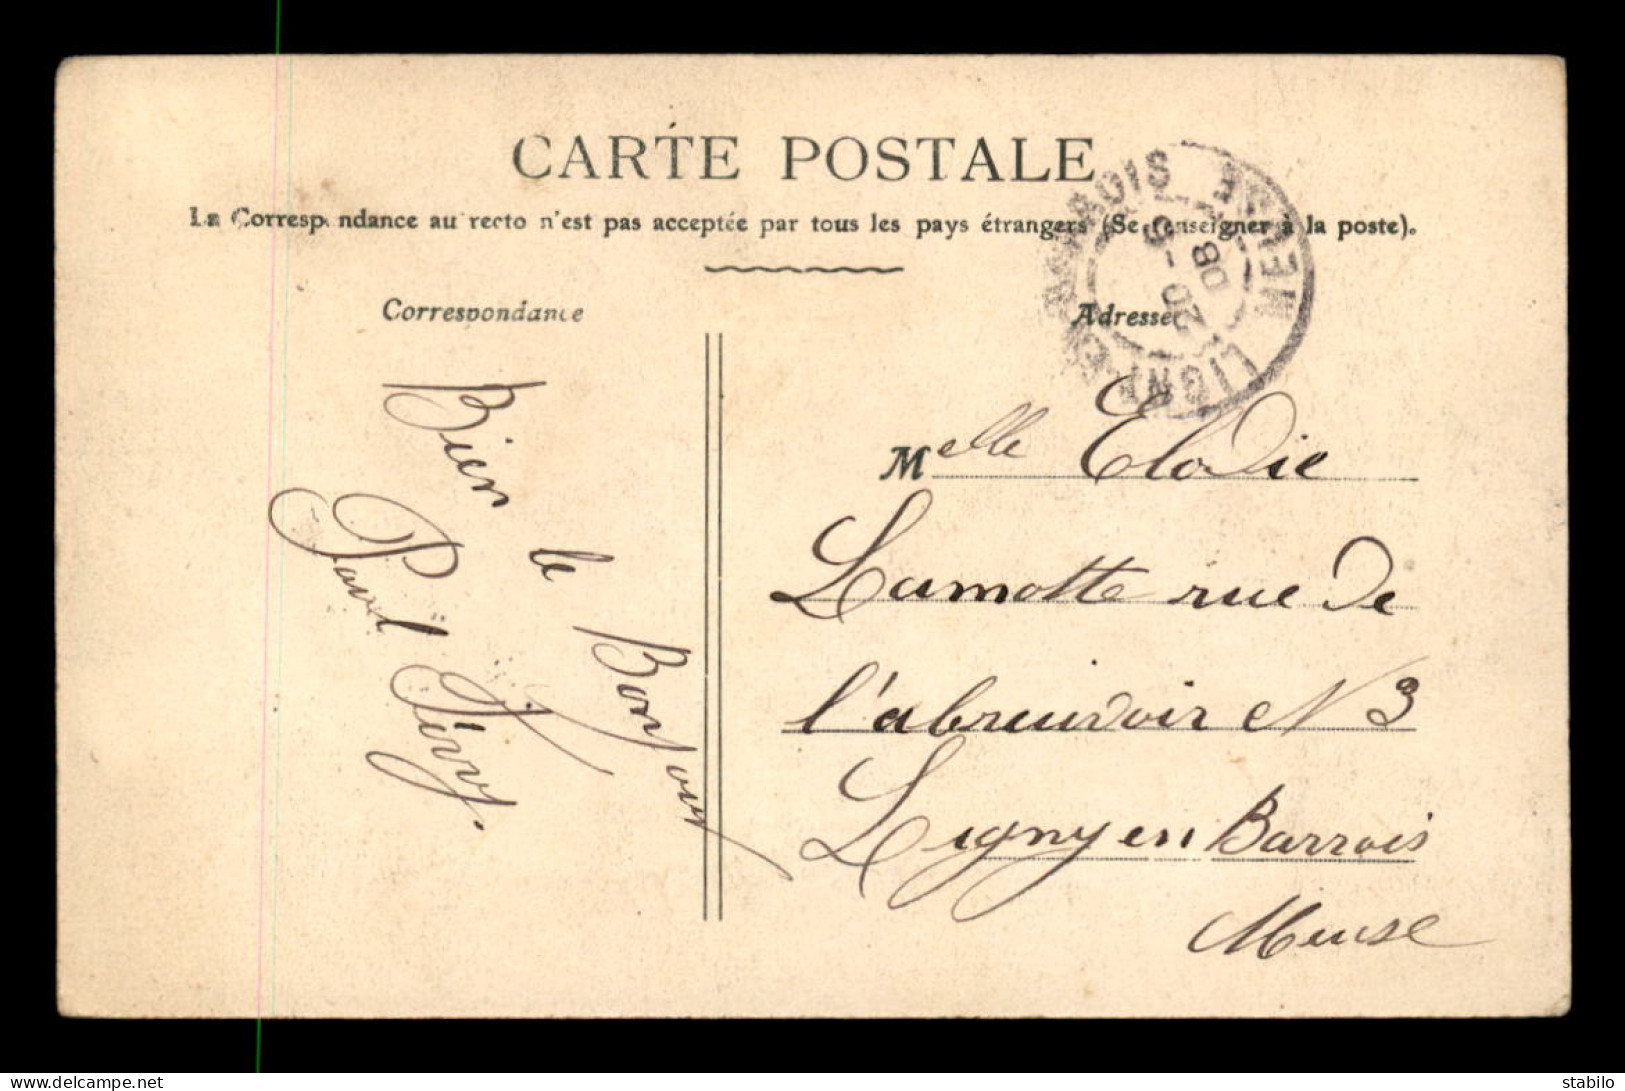 CARTE POSTALE
La Correspondance au recto n'est pas acceptée par tous les pays étrangers (Se renseigner à la poste).
Correspondance
Bien
le
Bonjour
Paul
Adresse
LIGNY-EN-BARROIS MEUSE
20 -
08
Melle Elodie
Lamotte rue de
l'abreuvoir N 3
Ligny en Barrois
Meuse
stabilo